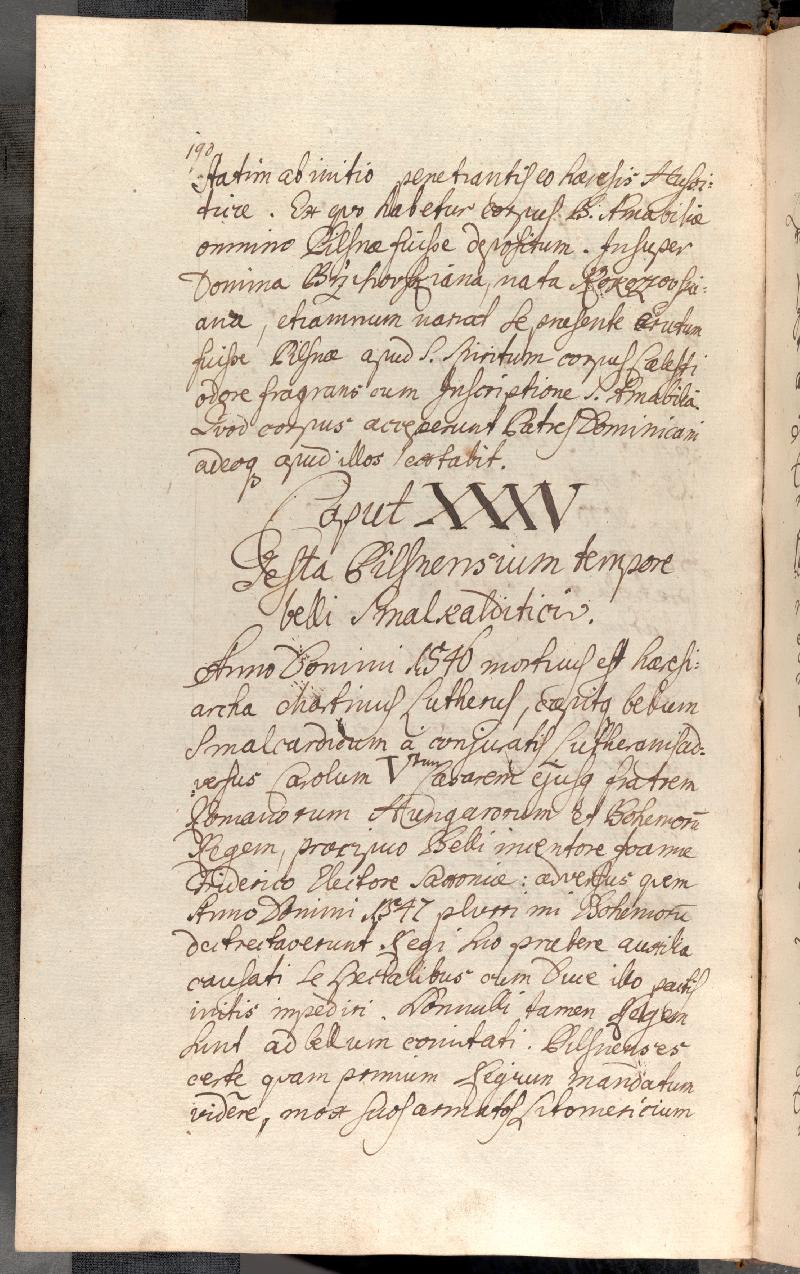 190
statim ab initio penetrantis eo hæresis Hussi:
ticæ. Ex quo habetur corpus B. Amabiliæ
omnino Pilsnæ fuisse depositum. Insuper
Domina nata
ana, etiamnum narrat se præsente erutum
fuisse Pilsnæ apud S. Spiritum corpus Cælesti
odore fragrans cum Inscriptione S. Amabilia.
Quod corpus acceperunt Patres Dominicani
adeoq apud illos extabit.
Caput XXXIV
Gesta Pilsnensium tempore
belli Smalcalditici.
Anno Domini 1546 mortuus est hæresi:
archa Martinus Lutherus, cæpitq bellum
Smalcardicum à conjuratis Lutheranis ad:
versus Carolum Vtum Cæsarem ejusq fratrem
Romanorum Hungarorum et Bohemorũ
Regem, præcipuo Belli inventore Joanne
Friderico Electore Saxoniæ: adversus quem
Anno Domini 1547 plurimi Bohemorũ
dectrectaverunt Regi suo præbere auxilia
causati se specialibus cum Duce illo pactis
initis impediri. Nonnulli tamen Regem
sunt ad bellum comitati. Pilsnenses
certe quam primum Regium mandatum
vidẽre, mox suos armatos Litomericium